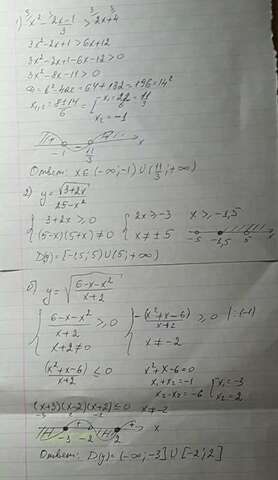 1) x² - (2x-1)/3 > 2x+4
3x²-2x+1>6x+12
3x²-2x+1-6x-12>0
3x²-8x-11>0
D=b²-4ac=64+132=196=14²
x₁,₂=(8±14)/6=[x₁=22/6=11/3
x₂=-1
-1 11/3 x
Ответ: x∈(-∞;-1)∪(11/3;+∞)
2) y=√(3+2x)/(25-x²)
{3+2x≥0 {2x≥-3 x≥-1,5
(5-x)(5+x)≠0 x≠±5
-5 -1,5 5 x
D(y)=[-1,5;5)∪(5;+∞)
б) y=√((6-x-x²)/(x+2))
{(6-x-x²)/(x+2)≥0 {-(x²+x-6)/(x+2)≥0 |:(-1)
x+2≠0 x≠-2
(x²+x-6)/(x+2)≤0 x²+x-6=0
x₁+x₂=-1 [x₁=-3
x₁·x₂=-6 x₂=2
(x+3)(x-2)(x+2)≤0 x≠-2
- + - +
-3 -2 2 x
Ответ: D(y)=(-∞;-3]∪[-2;2]